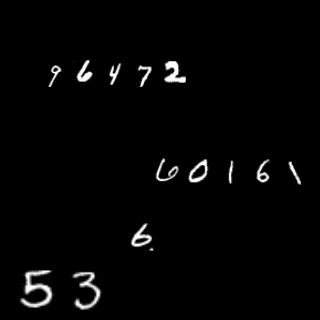 96472
60161
6
53